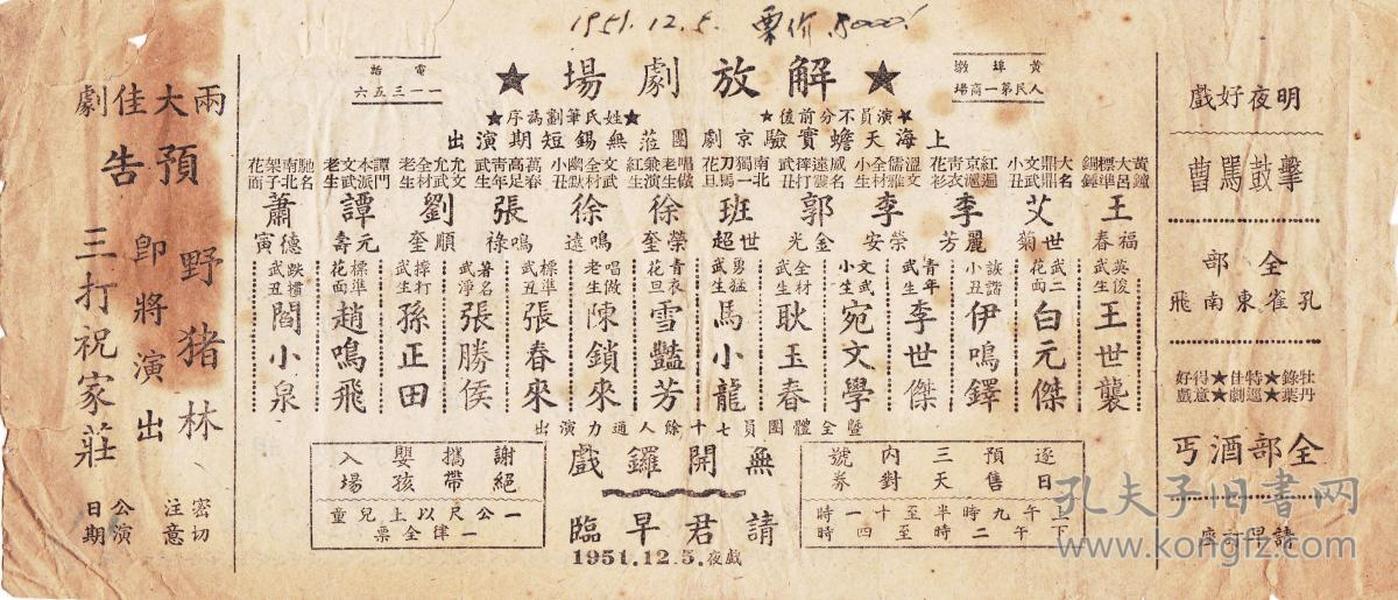 1951.12.5. 票价.5000.
明夜好戲
擊鼓罵曹
全部
孔雀東南飛
牡丹綠葉★特巡佳劇★得意好戲
全部酒丐
請早訂座
黃埠墩
人民第一商場
★解放劇場★
電話
一一三五六
★演員不分前後★
★姓氏筆劃為序★
上海天蟾實驗京劇團蒞無錫短期演出
黃鐘大呂標準銅錘 王福春
大名鼎鼎文武小丑 艾世菊
紅遍京滬青衣花衫 李麗芳
溫文儒雅全材小生 李榮安
威名遠震摔打武丑 郭金光
南北獨一刀馬花旦 班世超
唱做老生兼演紅生 徐榮奎
文武全材幽默小丑 徐鳴遠
萬春高足青年武生 張鳴祿
允文允武全材老生 劉順奎
譚門本派文武老生 譚元壽
馳名南北架子花面 蕭德寅
英俊武生 王世襲
武二花面 白元傑
詼諧小丑 伊鳴鐸
青年武生 李世傑
文武小生 宛文學
全材武生 耿玉春
勇猛武生 馬小龍
青衣花旦 雪豔芳
唱做老生 陳鎖來
標準武丑 張春來
著名武淨 張勝侯
摔打武生 孫正田
標準花面 趙鳴飛
跌撲武丑 閻小泉
暨全體團員七十餘人通力演出
逐日預售三天內對號券
上午九時半至十一時
下午二時至四時
無開鑼戲
請君早臨
1951.12.5.夜戲
謝絕攜帶嬰孩入場
一公尺以上兒童
一律全票
兩大佳劇
預告
野猪林
即將演出
三打祝家莊
密切注意
公演日期
孔夫子旧书网
www.kongfz.com